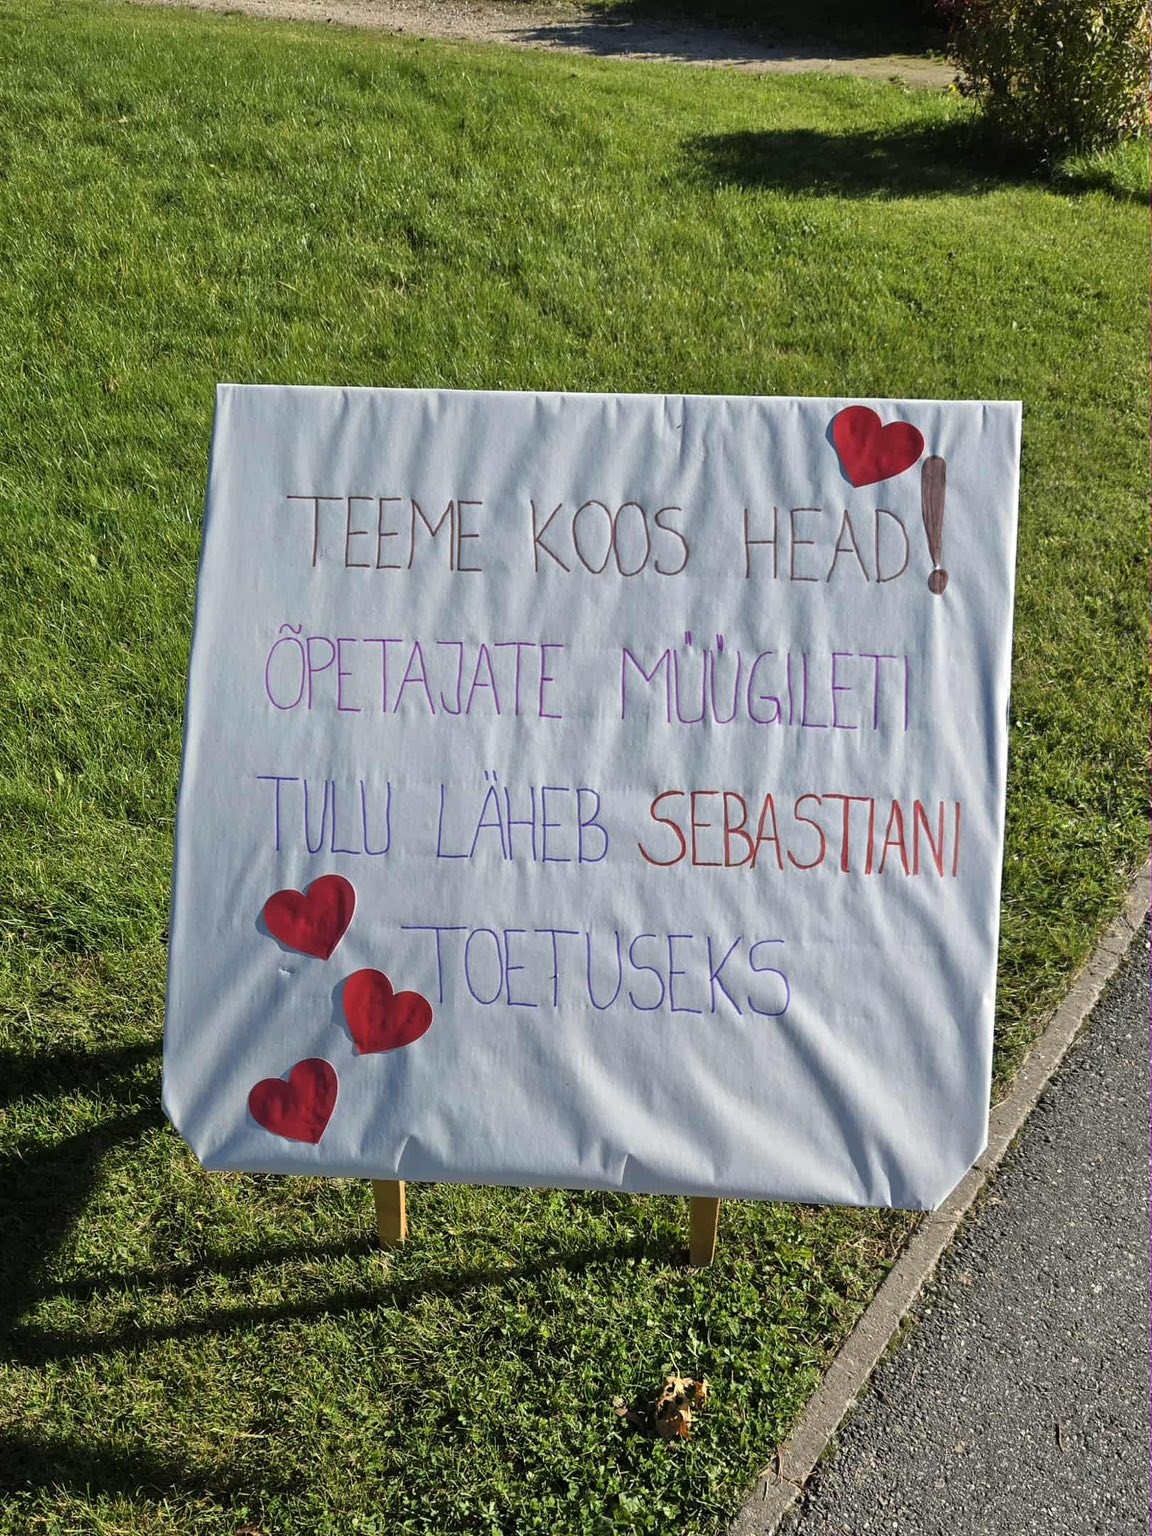 TEEME KOOS HEAD!
ÕPETAJATE MÜÜGILETI
TULU LÄHEB SEBASTIANI
TOETUSEKS